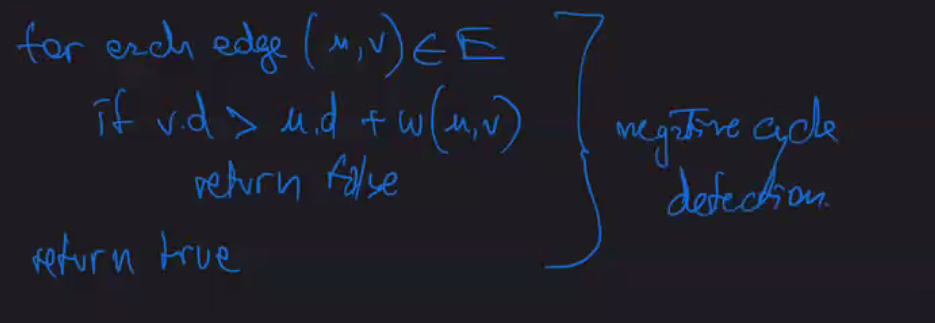 for each edge (u,v) ∈ E
if v.d > u.d + w(u,v)
return false
return true
negative cycle
detection.